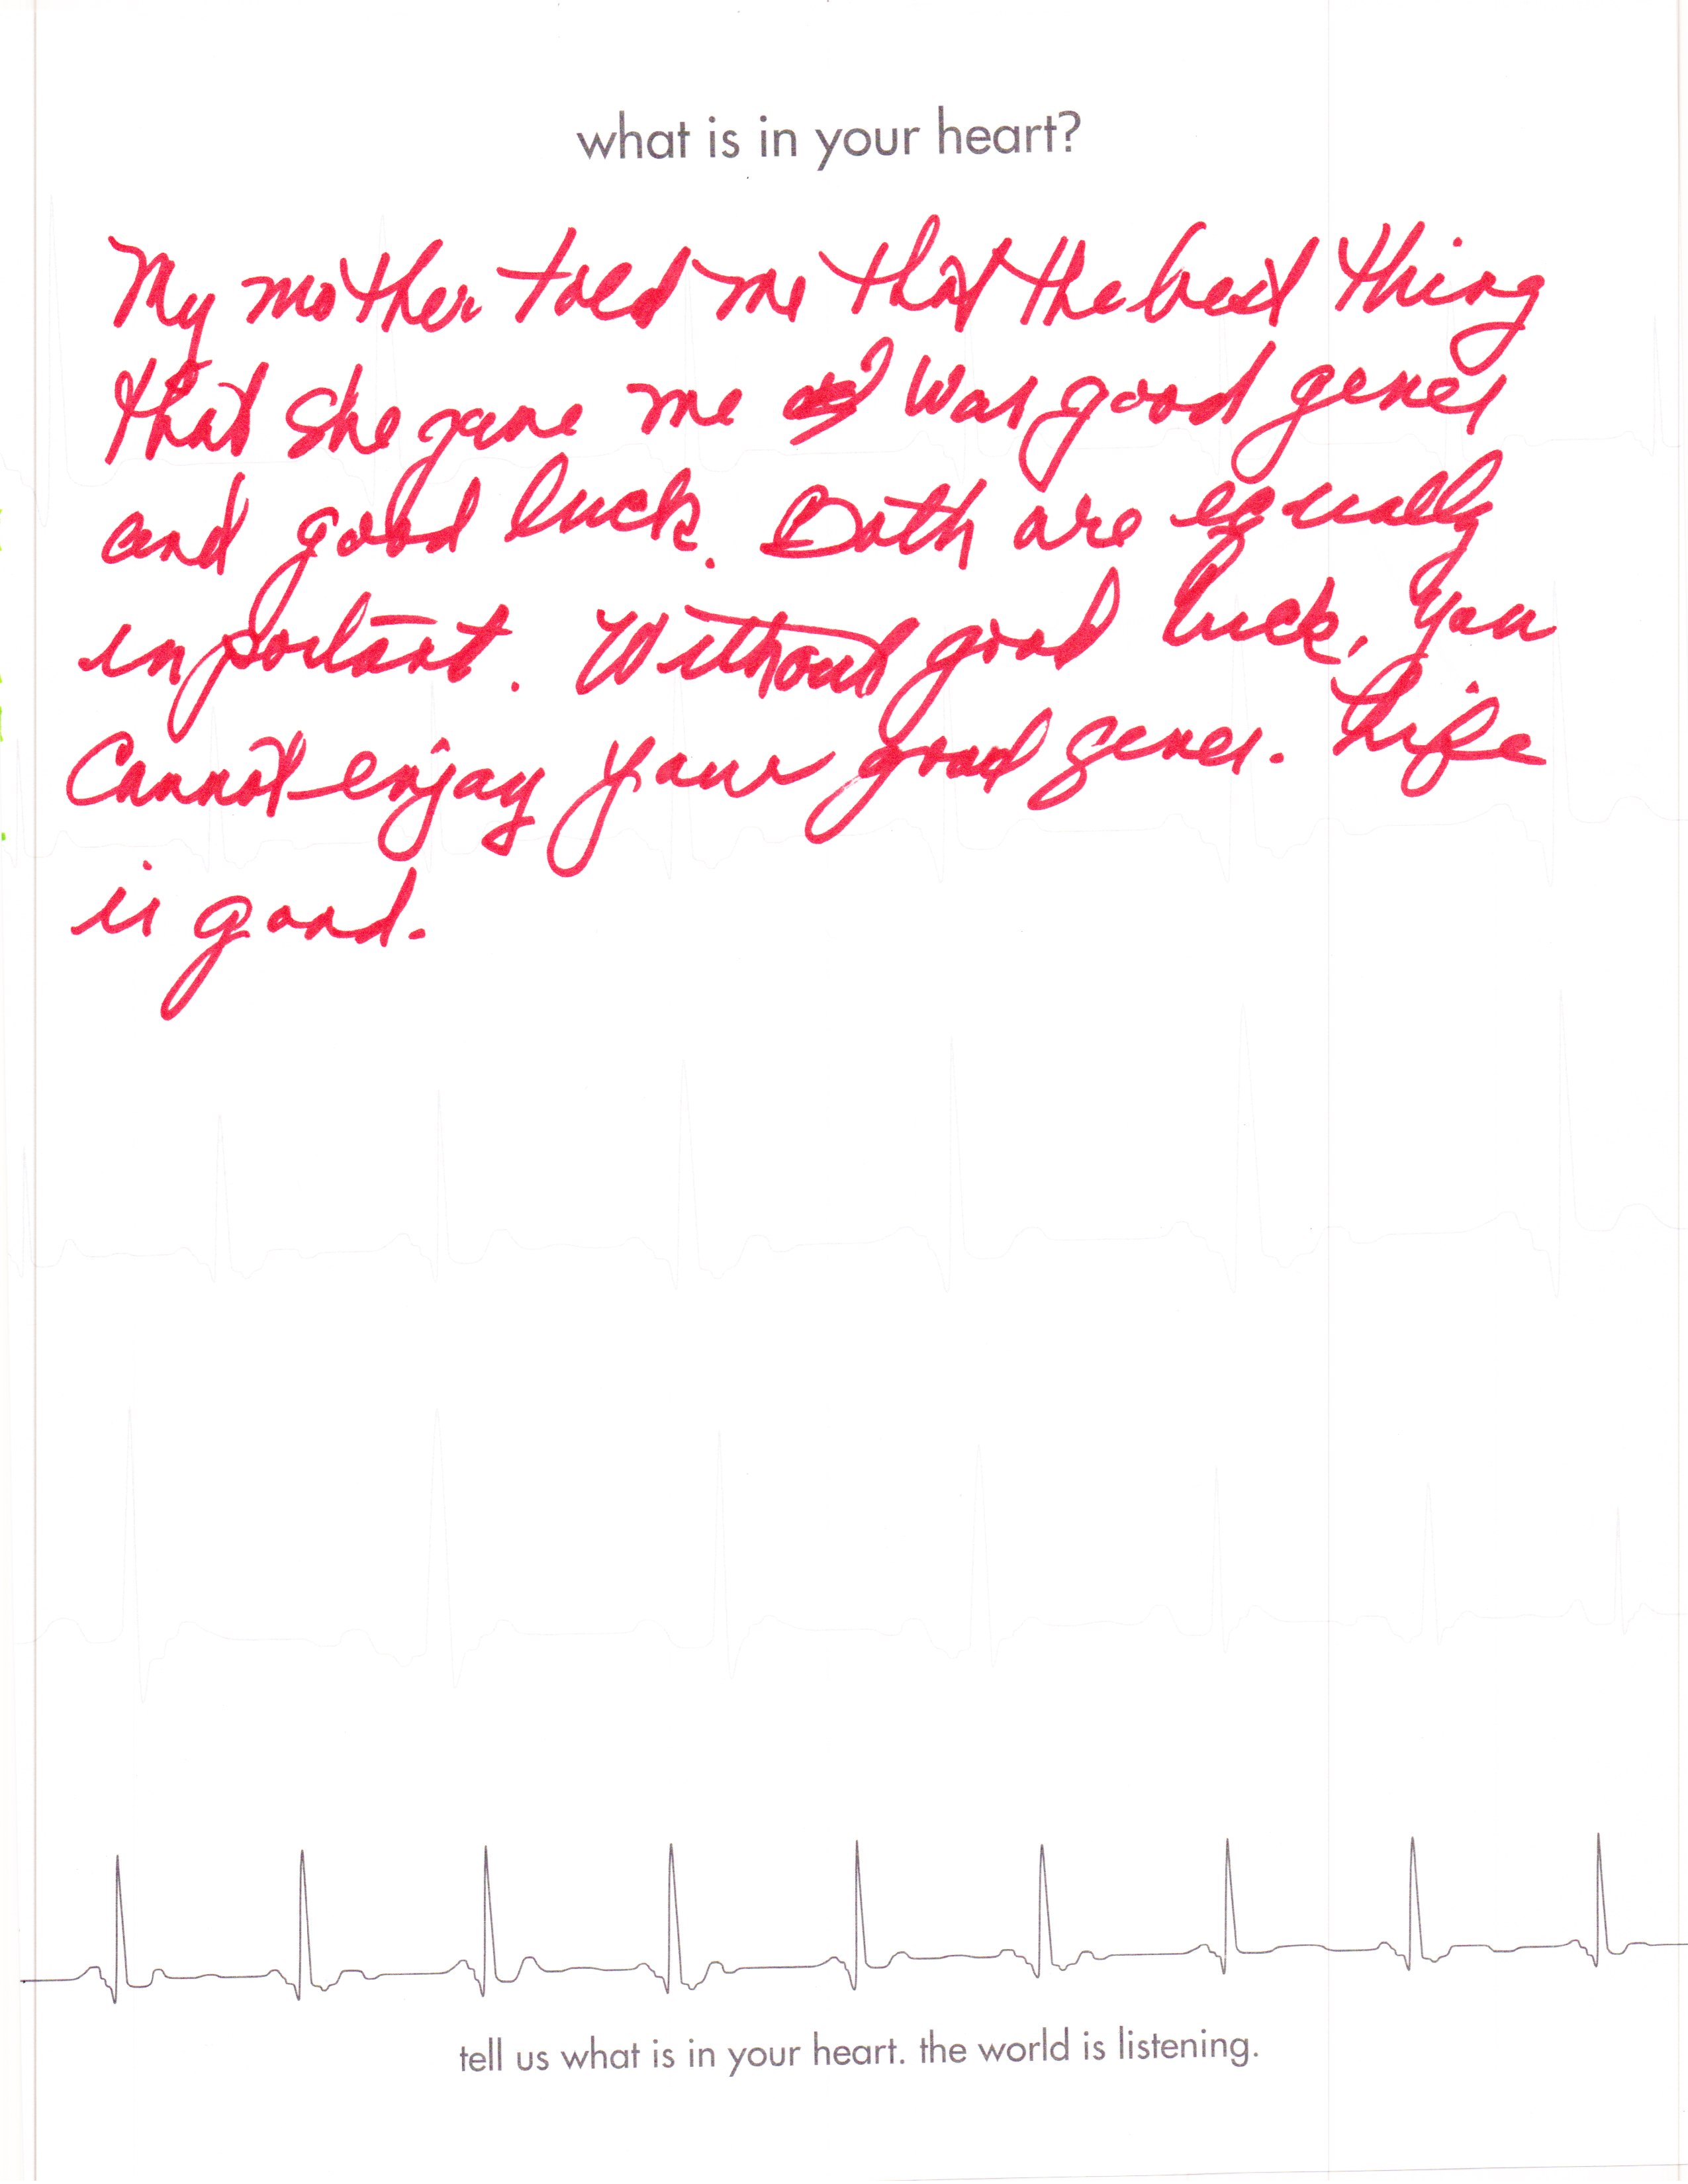 what is in your heart?
My mother told me that the best thing
that she gave me was good genes
and good luck. Both are equally
important. Without good luck, you
cannot enjoy your good genes. Life
is good.
tell us what is in your heart. the world is listening.